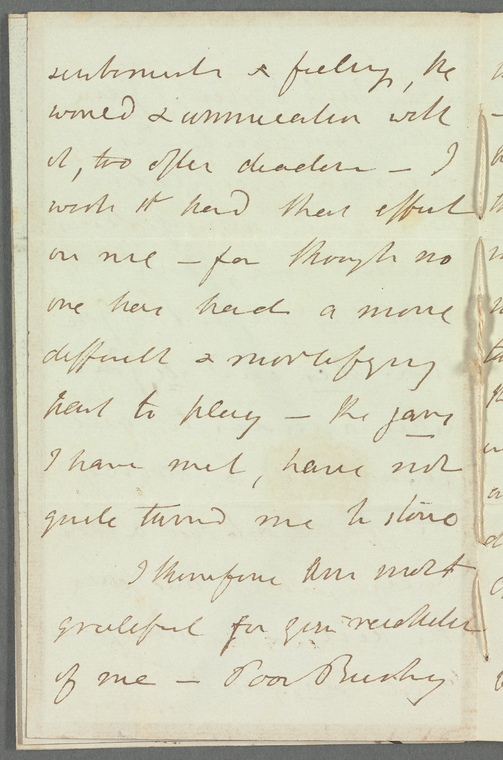 sentiments & feelings, the
world & communication with
it, too often deaden — I
wish it had that effect
on me — for though no
one has had a more
difficult & mortifying
part to play — the
I have met, have not
quite turned me to stone
I therefore am most
grateful for your recollection
of me — Poor Bushy